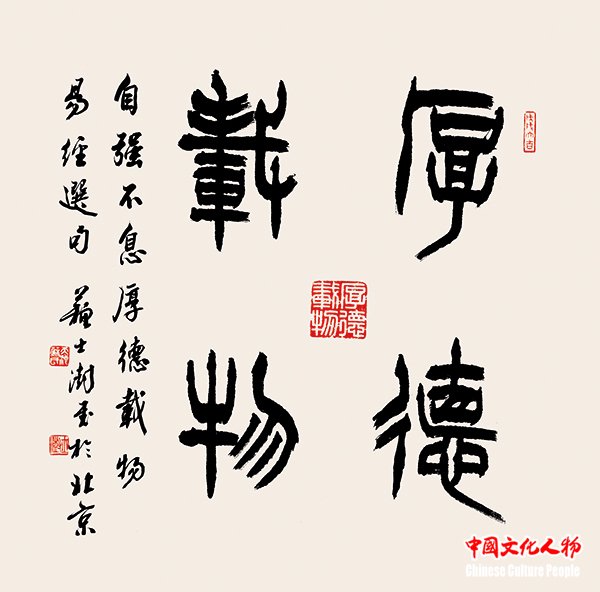 厚德
載物
厚德載物
自强不息厚德載物
易經選句 蘇士澍書於北京
中國文化人物
Chinese Culture People